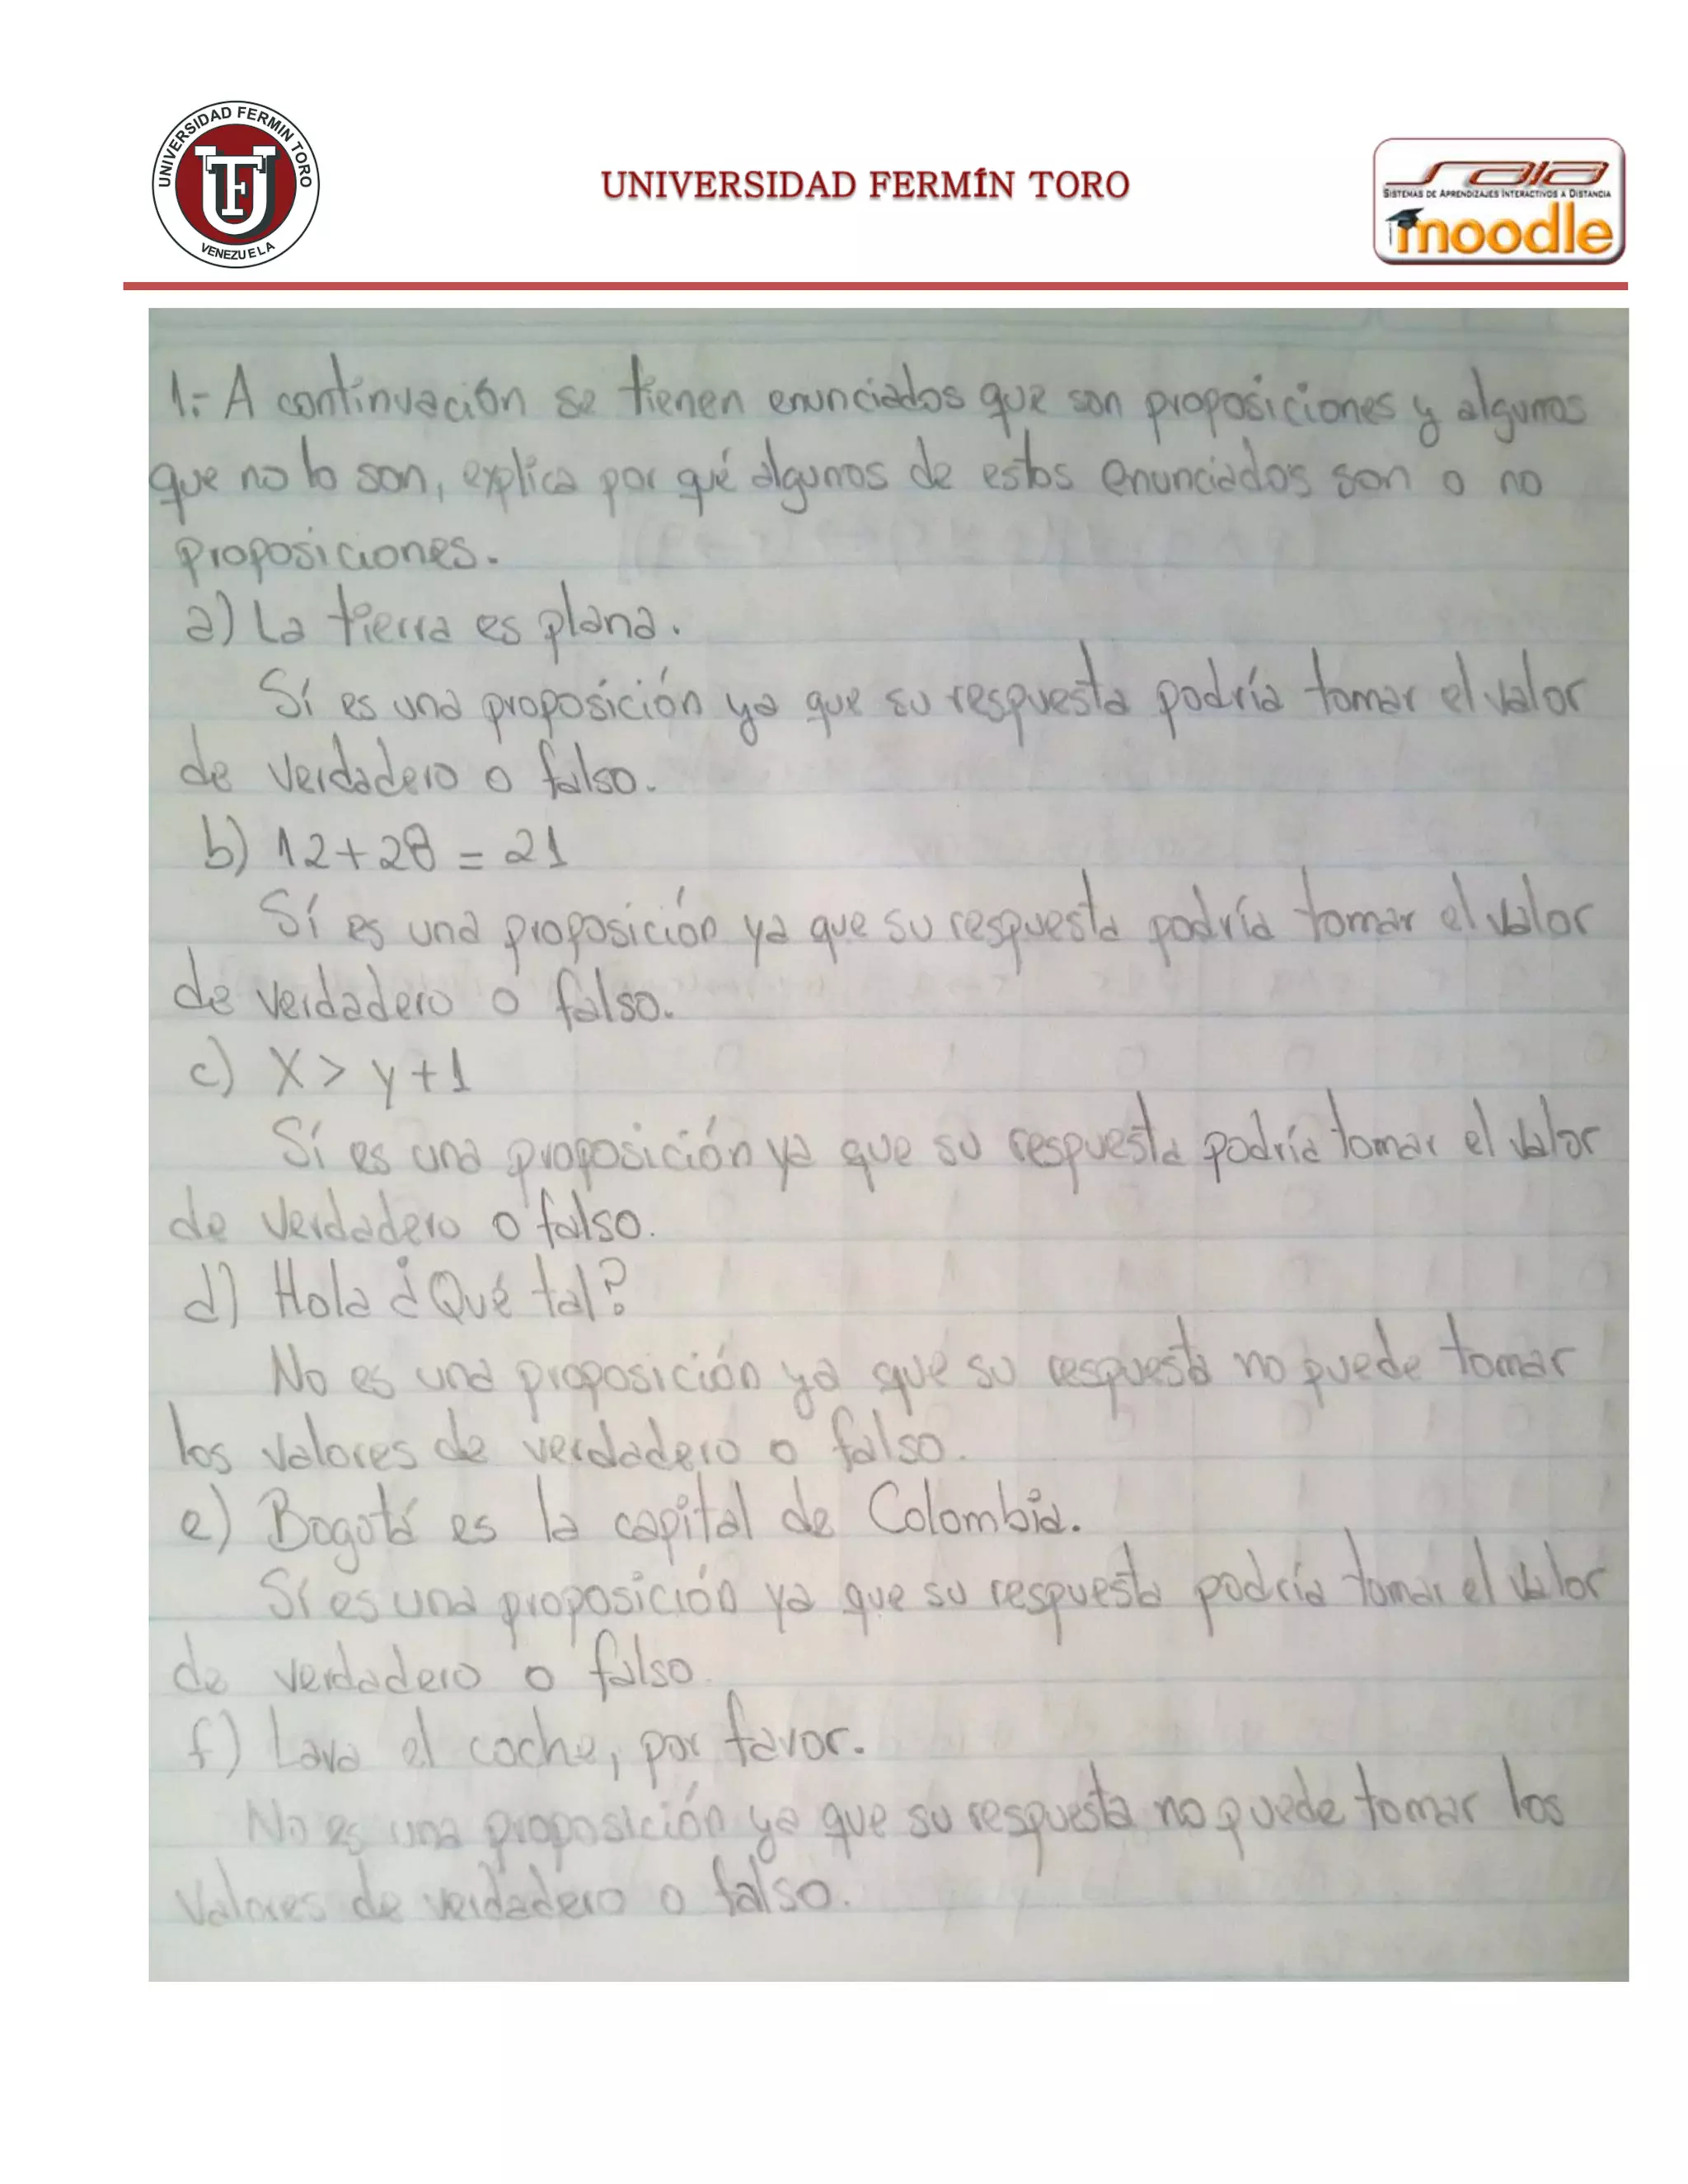 UNIVERSIDAD FERMIN TORO
VENEZUELA
UNIVERSIDAD FERMÍN TORO
SAIA
SISTEMAS DE APRENDIZAJES INTERACTIVOS A DISTANCIA
moodle
1.- A continuación se tienen enunciados que son proposiciones y algunos
que no lo son, explica por qué algunos de estos enunciados son o no
proposiciones.
a) La tierra es plana.
Sí es una proposición ya que su respuesta podría tomar el valor
de verdadero o falso.
b) 12+28 = 21
Sí es una proposición ya que su respuesta podría tomar el valor
de verdadero o falso.
c) X > y+1
Sí es una proposición ya que su respuesta podría tomar el valor
de verdadero o falso.
d) Hola ¿Qué tal?
No es una proposición ya que su respuesta no puede tomar
los valores de verdadero o falso.
e) Bogotá es la capital de Colombia.
Sí es una proposición ya que su respuesta podría tomar el valor
de verdadero o falso.
f) Lava el coche, por favor.
No es una proposición ya que su respuesta no puede tomar los
valores de verdadero o falso.